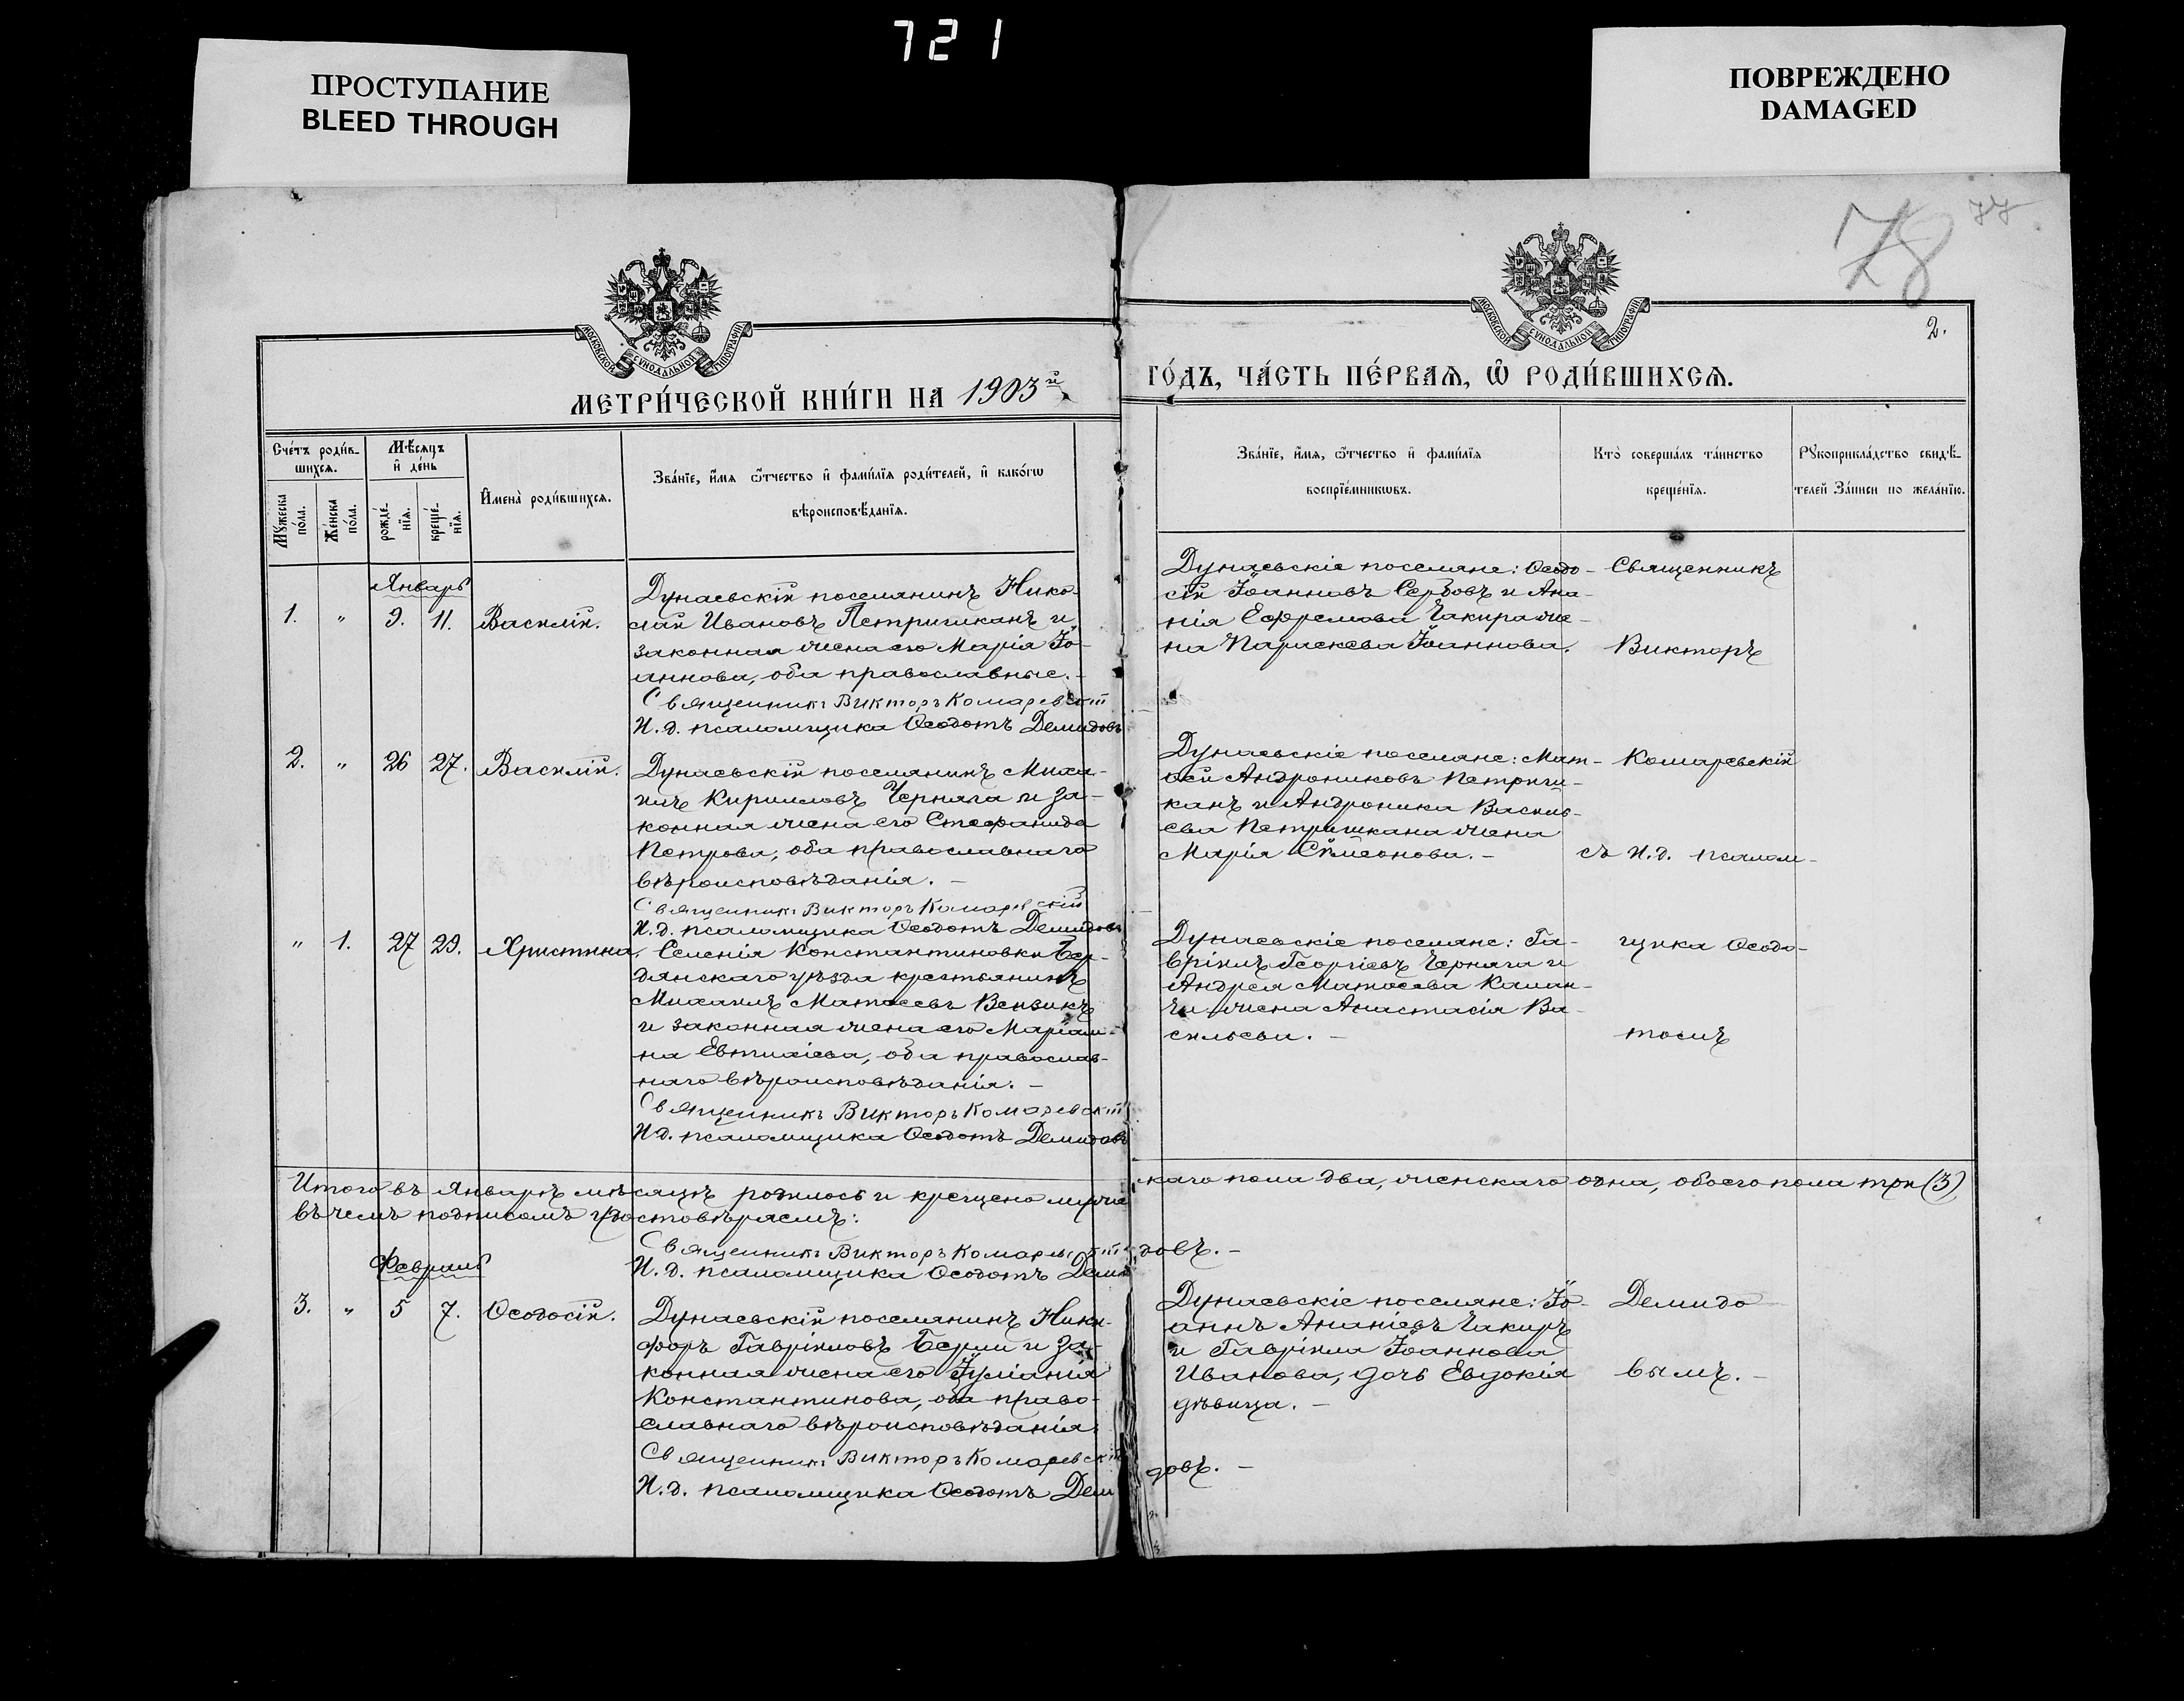 721
ПРОСТУПАНИЕ
BLEED THROUGH
ПОВРЕЖДЕНО
DAMAGED
78
77
2.
МОСКОВСКОЙ СѴНОДАЛЬНОЙ ТИПОГРАФІИ
МОСКОВСКОЙ СѴНОДАЛЬНОЙ ТИПОГРАФІИ
МЕТРИ́ЧЕСКОЙ КНИ́ГИ НА 1903й
ГО́ДЪ, ЧА́СТЬ ПЕ́РВАѦ, Ѡ҆ РОДИ́ВШИХСѦ.
Сче́тъ роди́в-
шихсѧ.
Мꙋ́жеска по́ла.
Же́нска по́ла.
Мѣ́сѧцъ
и҆ де́нь
рожде́-
нїѧ.
креще́-
нїѧ.
И҆мена̀ роди́вшихсѧ.
Зва́нїе, и҆́мѧ ѻ҆́тчество и҆ фами́лїѧ роди́телей, и҆ како́гѡ
вѣроисповѣ́данїѧ.
Зва́нїе, и҆́мѧ, ѻ҆́тчество и҆ фами́лїѧ
воспрїе́мникѡвъ.
Кто̀ соверша́лъ та́инство
креще́нїѧ.
Рꙋкоприкла́дство свидѣ́-
телей за́писи по жела́нїю.
Январь
1. " 9. 11. Василій.
Дунаевскій поселянинъ Нико-
лай Ивановъ Петричканъ и
законная жена его Марія Іо-
аннова, оба православные.-
Священникъ Викторъ Комаревскій
И.д. псаломщика Ѳеодотъ Демидовъ
Дунаевскіе поселяне: Ѳеодо-
сій Іоанновъ Сербовъ и Ана-
нія Ефремова Чакира же-
на Параскева Іоаннова.
Священникъ
Викторъ
2. " 26 27. Василій.
Дунаевскій поселянинъ Миха-
илъ Кирилловъ Черняга и за-
конная жена его Стефанида
Петрова, оба православнаго
вѣроисповѣданія. -
Священникъ Викторъ Комаревскій
И.д. псаломщика Ѳеодотъ Демидовъ
Дунаевскіе поселяне: Мат-
ѳей Андрониковъ Петричи-
канъ и Андроника Василь-
ева Петричкана жена
Марія Симеонова. -
Комаревскій
съ И.д. псалом-
" 1. 27 29. Христина.
Селенія Константиновки Бер-
дянскаго уѣзда крестьянинъ
Михаилъ Матѳеевъ
и законная жена его Маріам-
на Евтихіева, оба православ-
наго вѣроисповѣданія. -
Священникъ Викторъ Комаревскій
И.д. псаломщика Ѳеодотъ Демидовъ
Дунаевскіе поселяне: Га-
вріилъ Георгіевъ Черняга и
Андрея Матѳеева Калан-
жена Анастасія Ва-
сильева. -
щика Ѳеодо-
томъ
Итого въ Январѣ мѣсяцѣ родилось и крещено мужес-
каго пола два, женскаго одна, обоего пола три (3)
въ чемъ подписомъ удостовѣряемъ:
Священникъ Викторъ Комаревскій
И.д. псаломщика Ѳеодотъ Деми
довъ. -
Февраль
3. " 5 7. Ѳеодосій.
Дунаевскій поселянинъ Ники-
форъ Гавріиловъ и за-
конная жена его Іуліанія
Константинова, оба право-
славнаго вѣроисповѣданія.
Священникъ Викторъ Комаревскій
И.д. псаломщика Ѳеодотъ Деми
довъ. -
Дунаевскіе поселяне: Іо-
аннъ Ананіевъ Чакиръ
и Гавріила Іоаннова
Иванова, дочь Евдокія
дѣвица. -
Демидо
вымъ. -